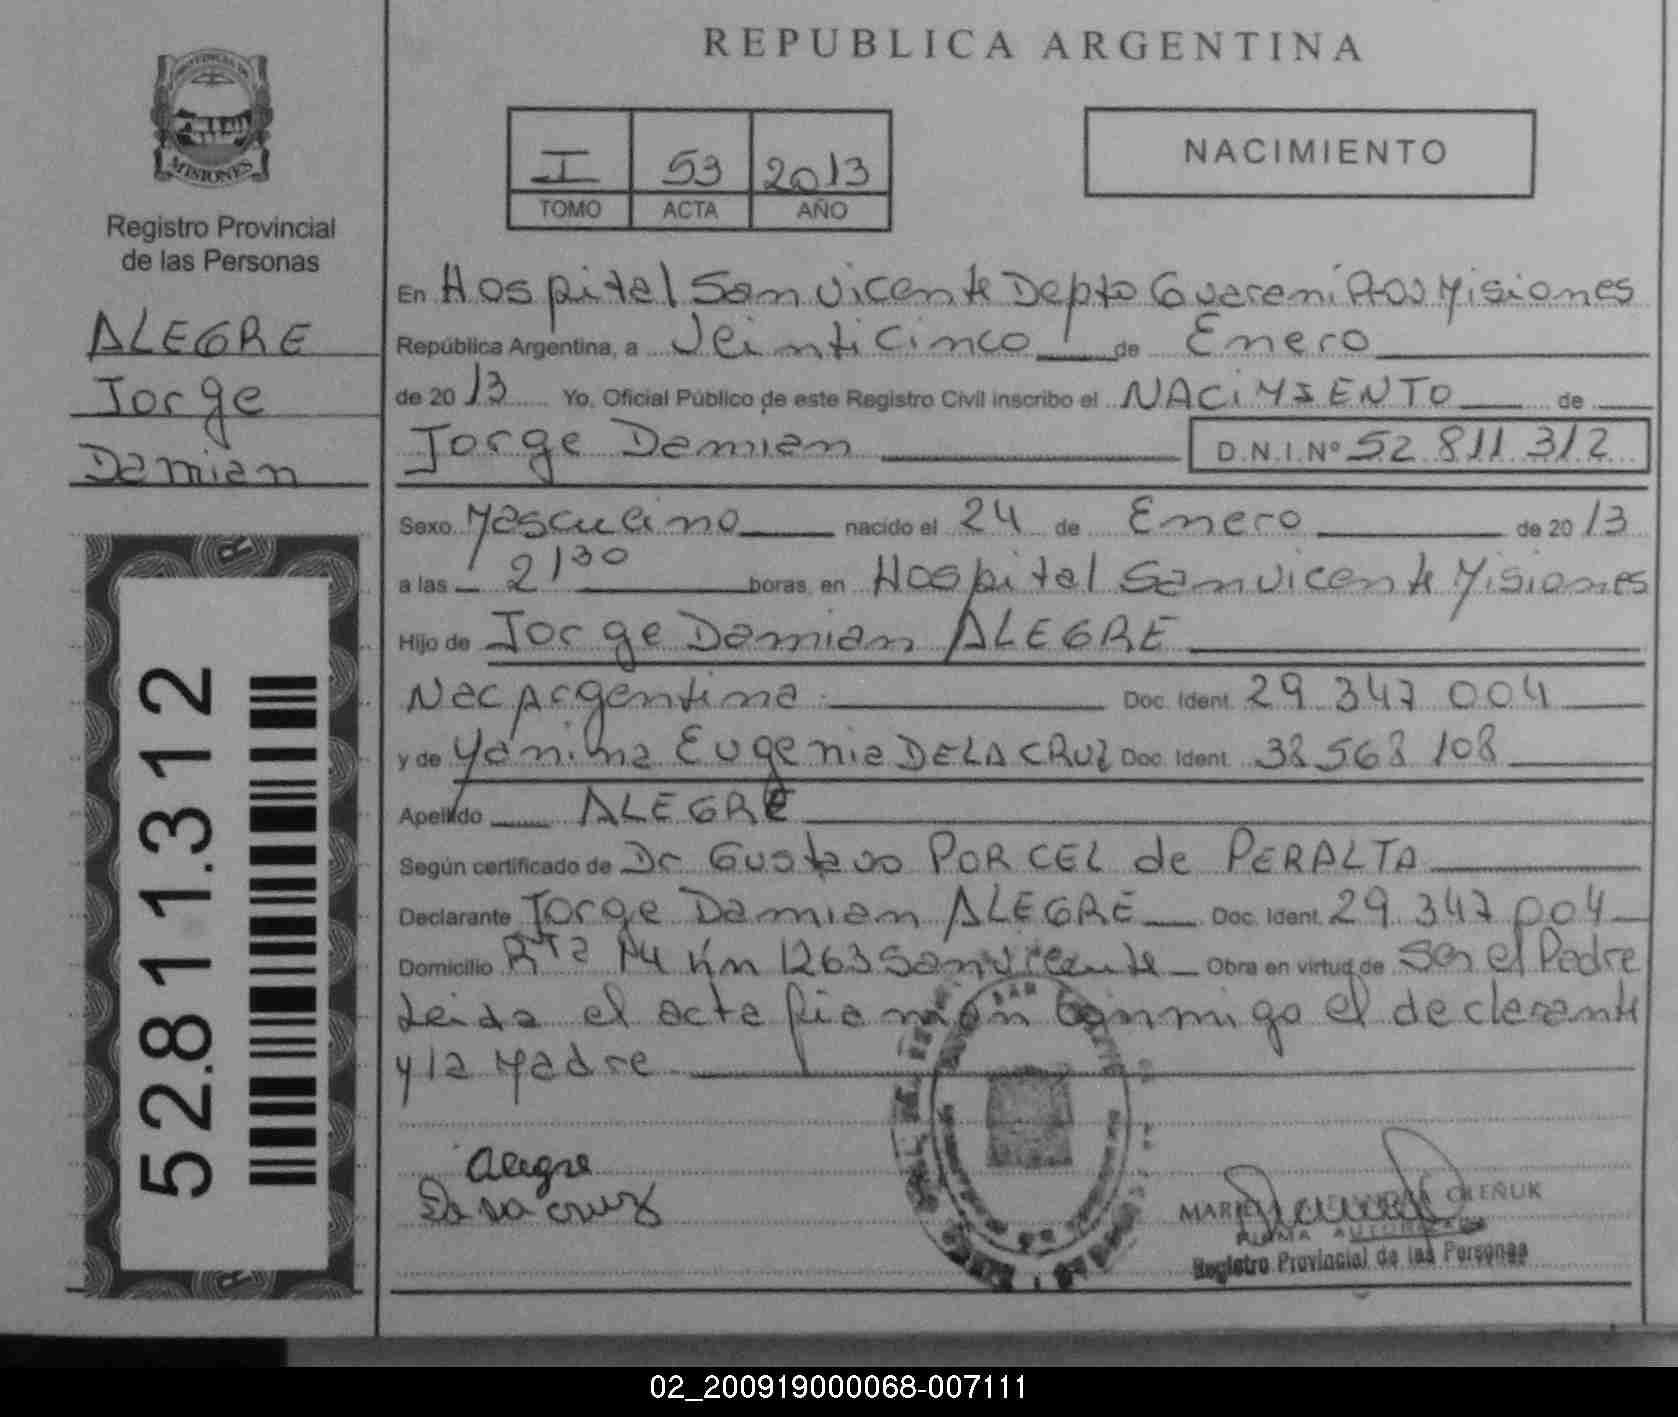 REPUBLICA ARGENTINA
PROVINCIA DE
MISIONES
Registro Provincial
de las Personas
ALEGRE
Jorge
Damian
52.811.312
I 53 2013
TOMO ACTA AÑO
NACIMIENTO
En Hospital San Vicente Depto Guarani Misiones
República Argentina, a Veinticinco de Enero
de 2013 Yo, Oficial Público de este Registro Civil inscribo el NACIMIENTO de
Jorge Damian D.N.I.Nº 52 811 312
Sexo Masculino nacido el 24 de Enero de 2013
a las 2130 horas, en Hospital San Vicente Misiones
Hijo de Jorge Damian ALEGRE
Nac Argentina Doc. Ident. 29 347 004
y de Yanina Eugenia DE LA CRUZ Doc. Ident. 38 568 108
Apellido ALEGRE
Según certificado de Dr Gustavo PORCEL de PERALTA
Declarante Jorge Damian ALEGRE Doc. Ident. 29 347 004
Domicilio Rta 14 Km 1263 San Vicente Obra en virtud de Ser el Padre
Leida el acta firman conmigo el declarante
y la Madre
Alegre
De la cruz
OLEÑUK
FIRMA AUTORIZADA
Registro Provincial de las Personas
02_200919000068-007111